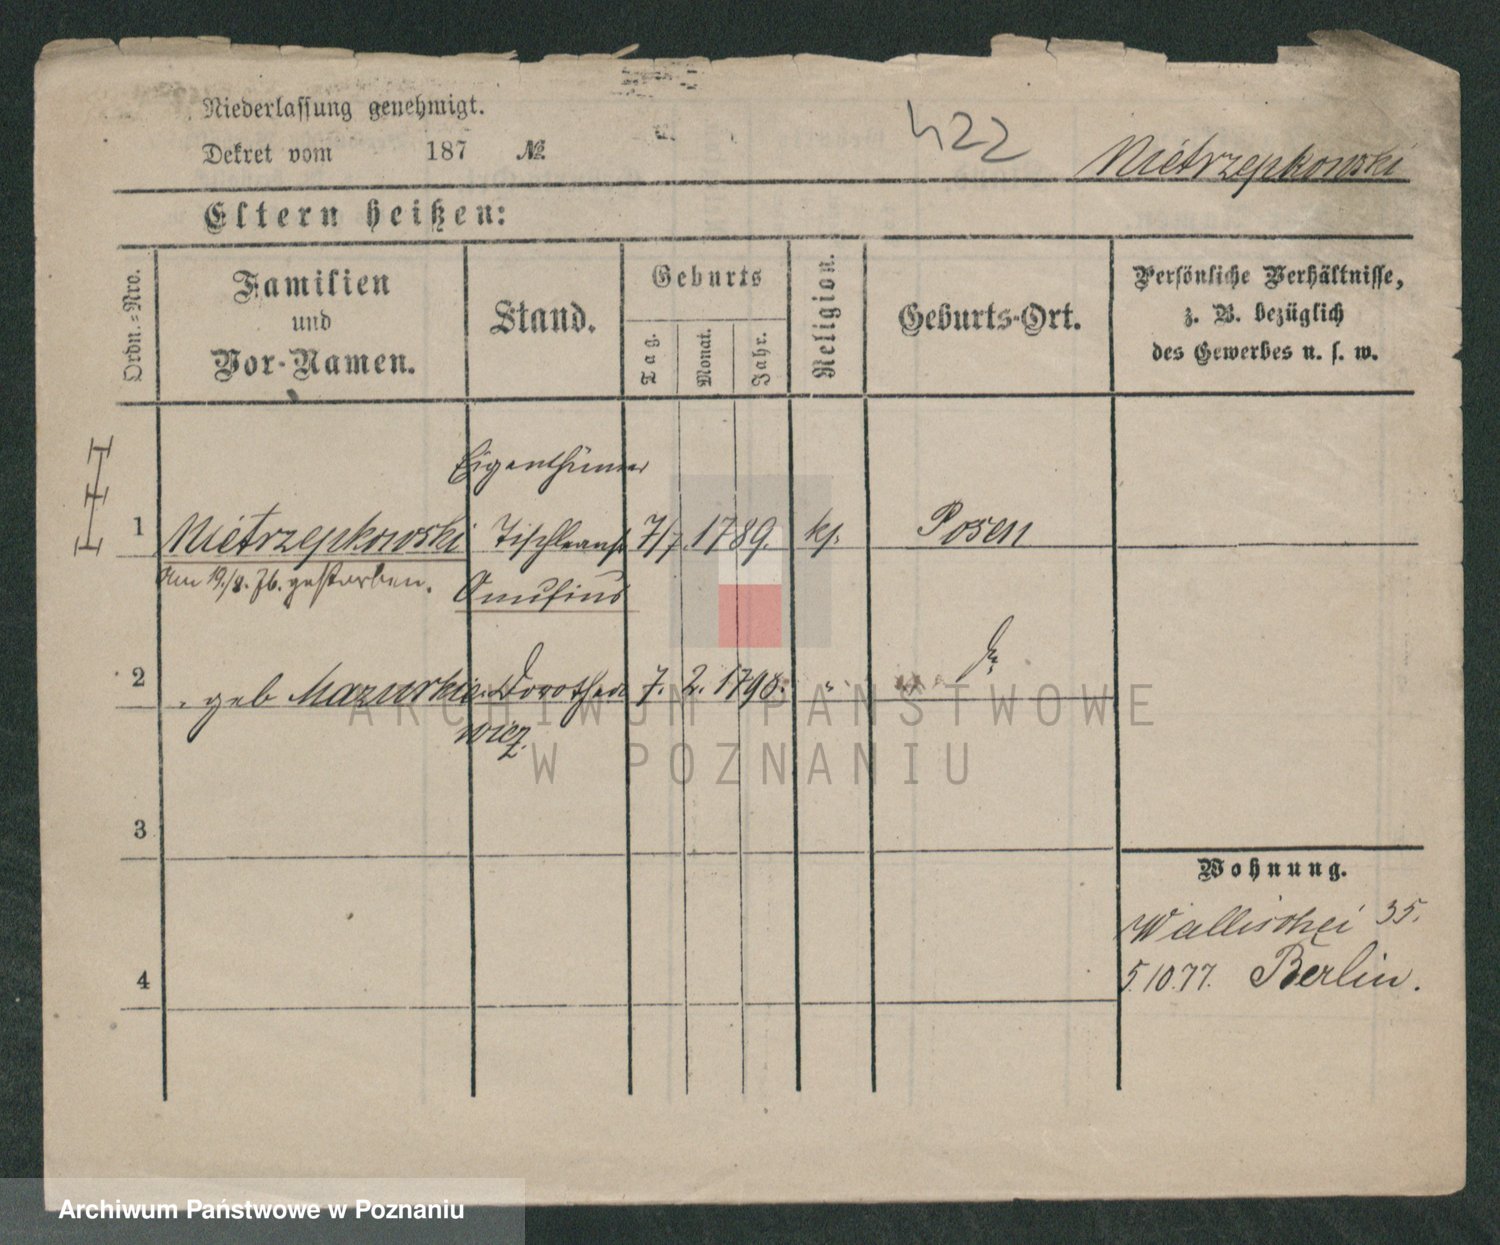 Niederlassung genehmigt.
Dekret vom 187 №
422
Nietrzepkowski
Eltern heißen:
Ordn.-Nro.
Familien
und
Vor-Namen.
Stand.
Geburts
Tag.
Monat.
Jahr.
Religion.
Geburts-Ort.
Persönliche Verhältnisse,
z. B. bezüglich
des Gewerbes u. s. w.
Eigenthümer
1 Nietrzepkowski 7/7. 1789. kj. Posen
Am 19./8. 76. gestorben.
Onufrius
2 geb Mazurkie- Dorothea 7. 2. 1798. "
wicz.
3
Wohnung.
Wallischei 35.
4
5.10.77. Berlin.
ARCHIWUM PAŃSTWOWE
W POZNANIU
Archiwum Państwowe w Poznaniu